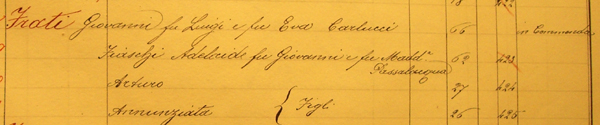 18 422
Frati Giovanni fu Luigi e fu Eva Carlucci 66 in Commenda
Fraschji Adelaide fu Giovanni e fu Madd.a 62 423
Passalacqua
Arturo 27 424
Annunziata { Figli 26 425